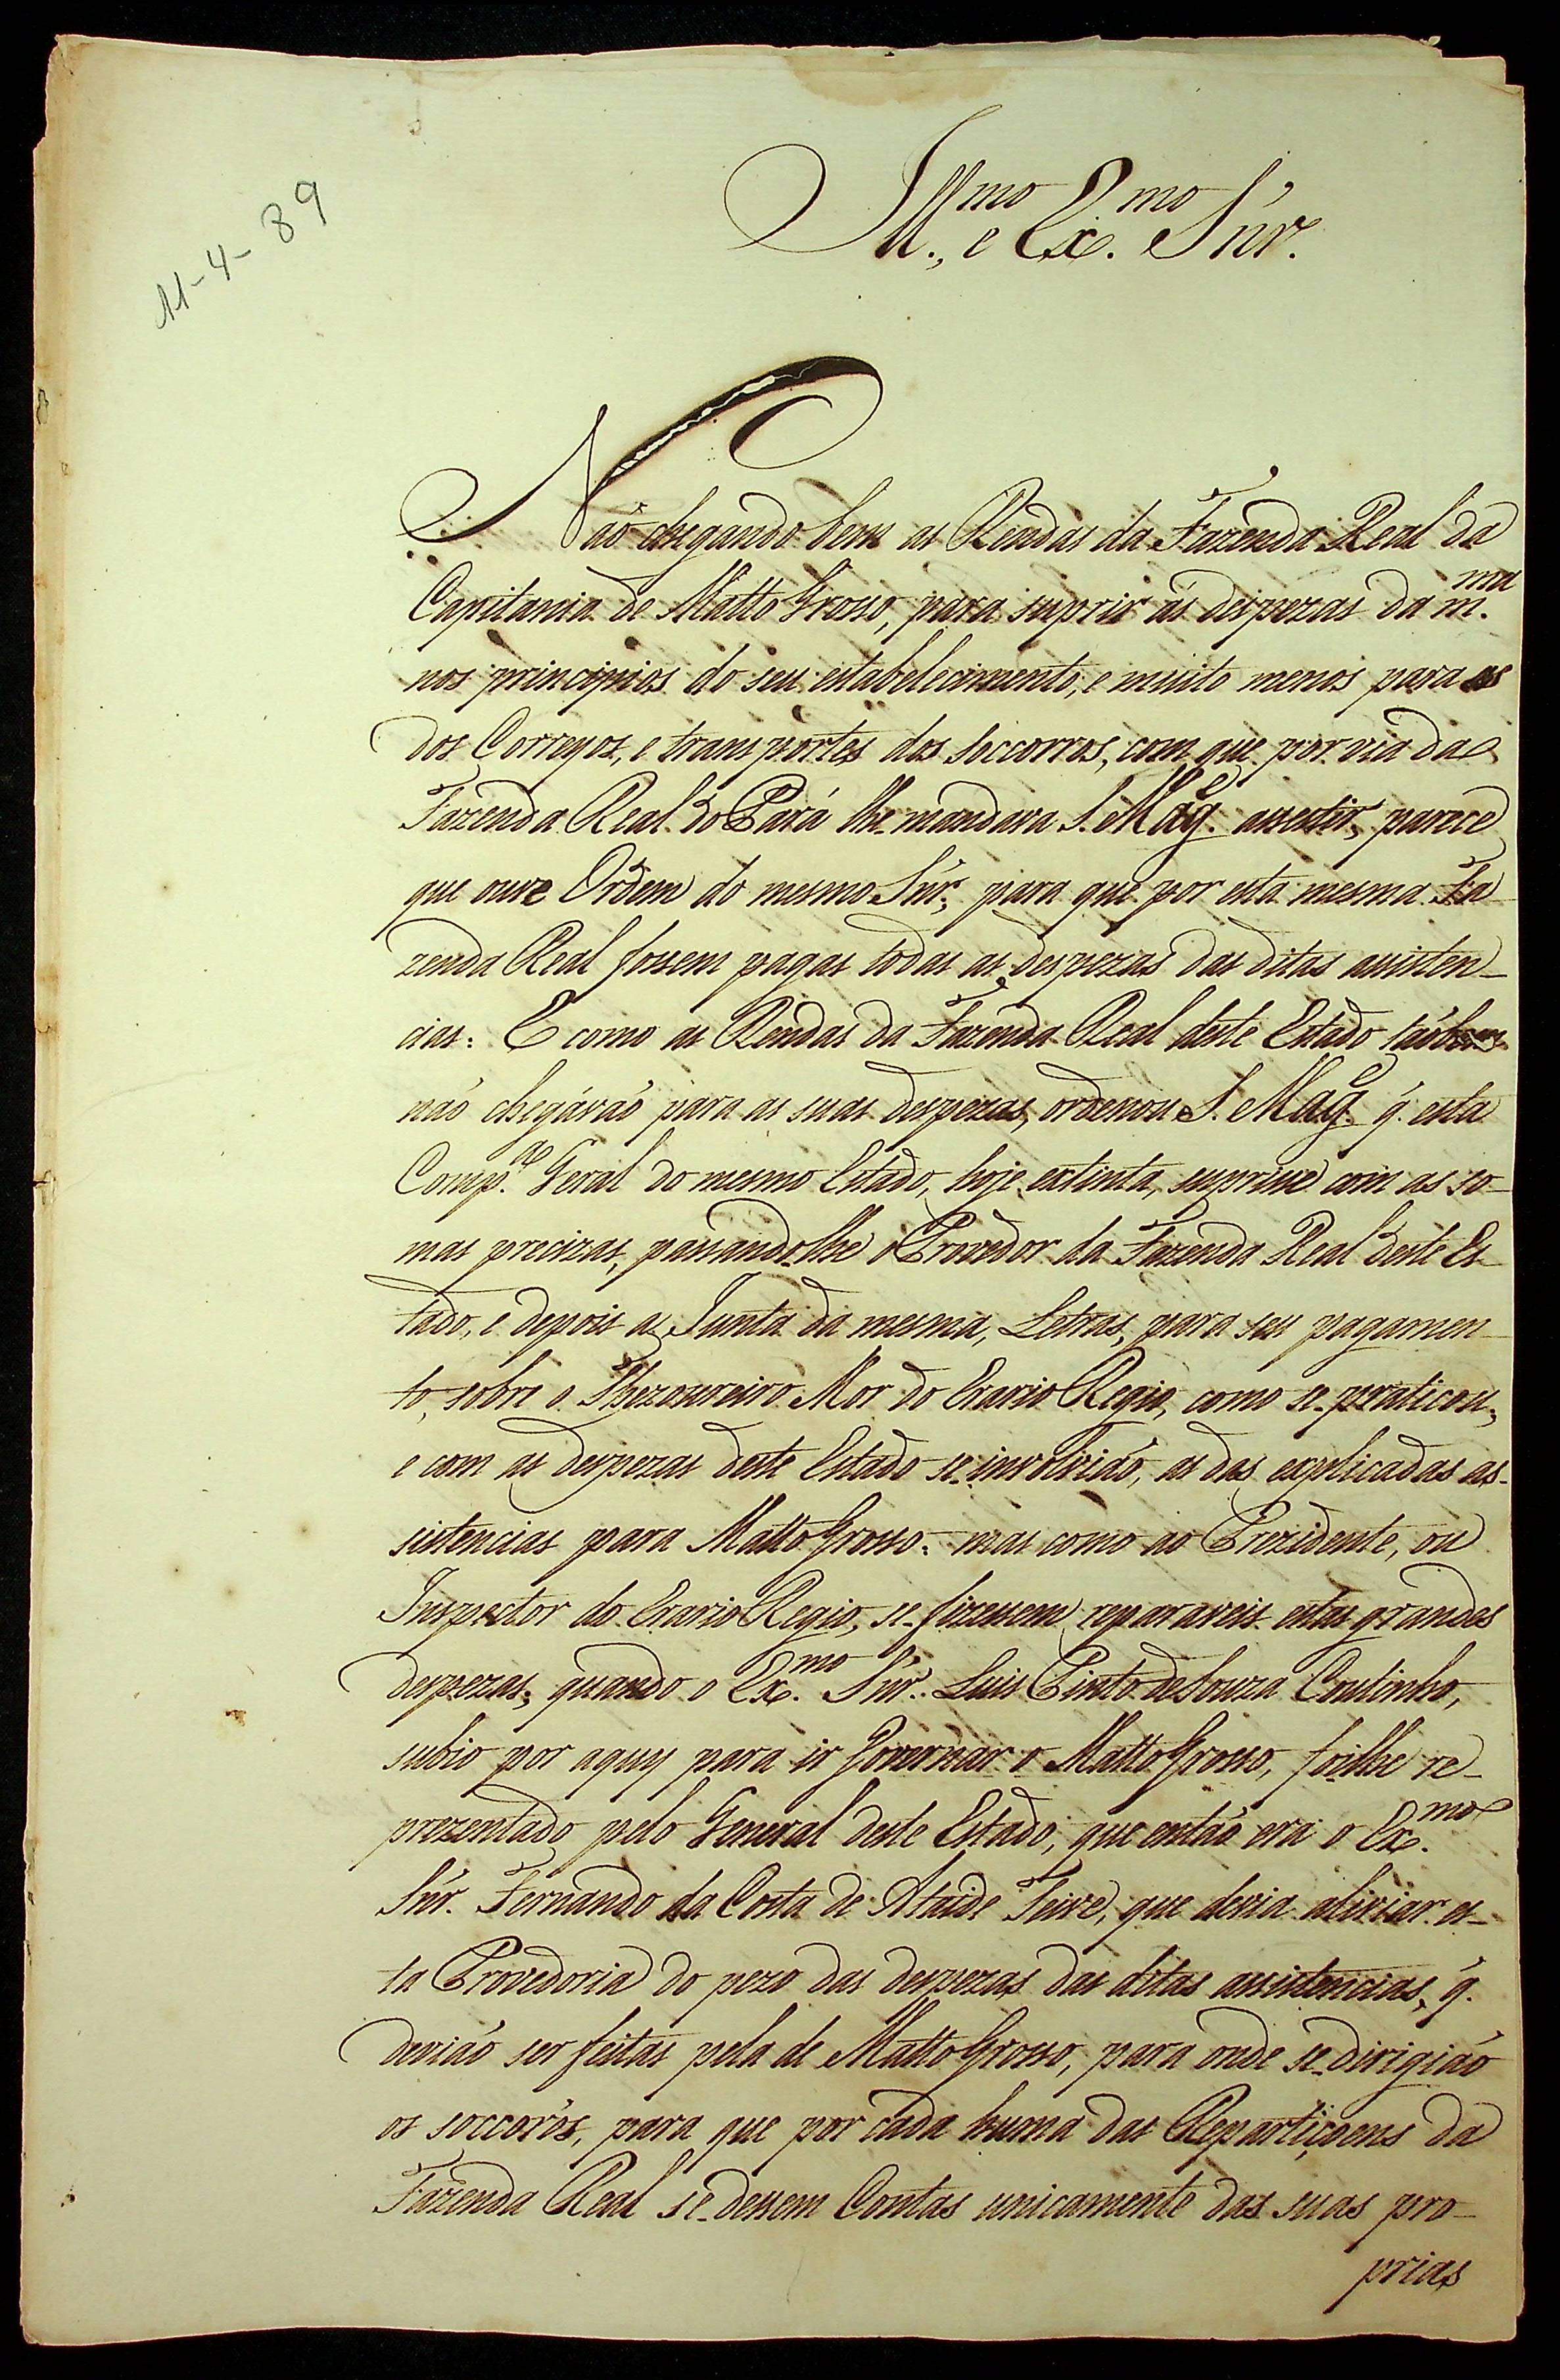 11-4-89
Ill.mo, e Ex.mo Snr.
Naõ chegando bem as Rendas da Fazenda Real da
Capitania de Matto Grosso, para suprir ás despezas da m.ma
nos principios do seu estabelecimento; e muito menos para as
dos Correyos, e transportes dos soccorros, com que por via da
Fazenda Real do Pará lhe mandava S. Mag.e assestir, parece
que ouve Ordem do mesmo Snr., para que por esta mesma Fa-
zenda Real fossem pagas todas as despezas das ditas assisten-
cias: E como as Rendas da Fazenda Real deste Estado taõbem
naõ chegávaõ para as suas despezas, ordenou S. Mag.e q̃ esta
Comp.a Geral do mesmo Estado, hoje extinta, suprise com as so-
mas precizas, passando-lhe o Provedor da Fazenda Real deste Es-
tado, e depois a Junta da mesma, Letras, para seu pagamen-
to, sobre o Thezoureiro Mor do Erario Regio, como se-praticou,
e com as despezas deste Estado se-involviaõ, as das explicadas as-
sistencias para Matto Grosso: mas como ao Prezidente, ou
Inspector do Erario Regio, se-fizessem reparaveis estas grandes
despezas; quando o Ex.mo Snr. Luis Pinto de Souza Coutinho,
subio por aquy para ir Governar o Matto Grosso, foi-lhe re-
prezentado pelo General deste Estado, que entaõ era o Ex.mo
Snr. Fernando da Costa de Ataide Teive, que devia aliviar es-
ta Provedoria do pezo das despezas das ditas assistencias, q̃
deviaõ ser feitas pela de Matto Grosso, para onde se-dirigiaõ
os soccoros, para que por cada huma das Repartiçoens da
Fazenda Real se-dessem Contas unicamente das suas pro-
prias